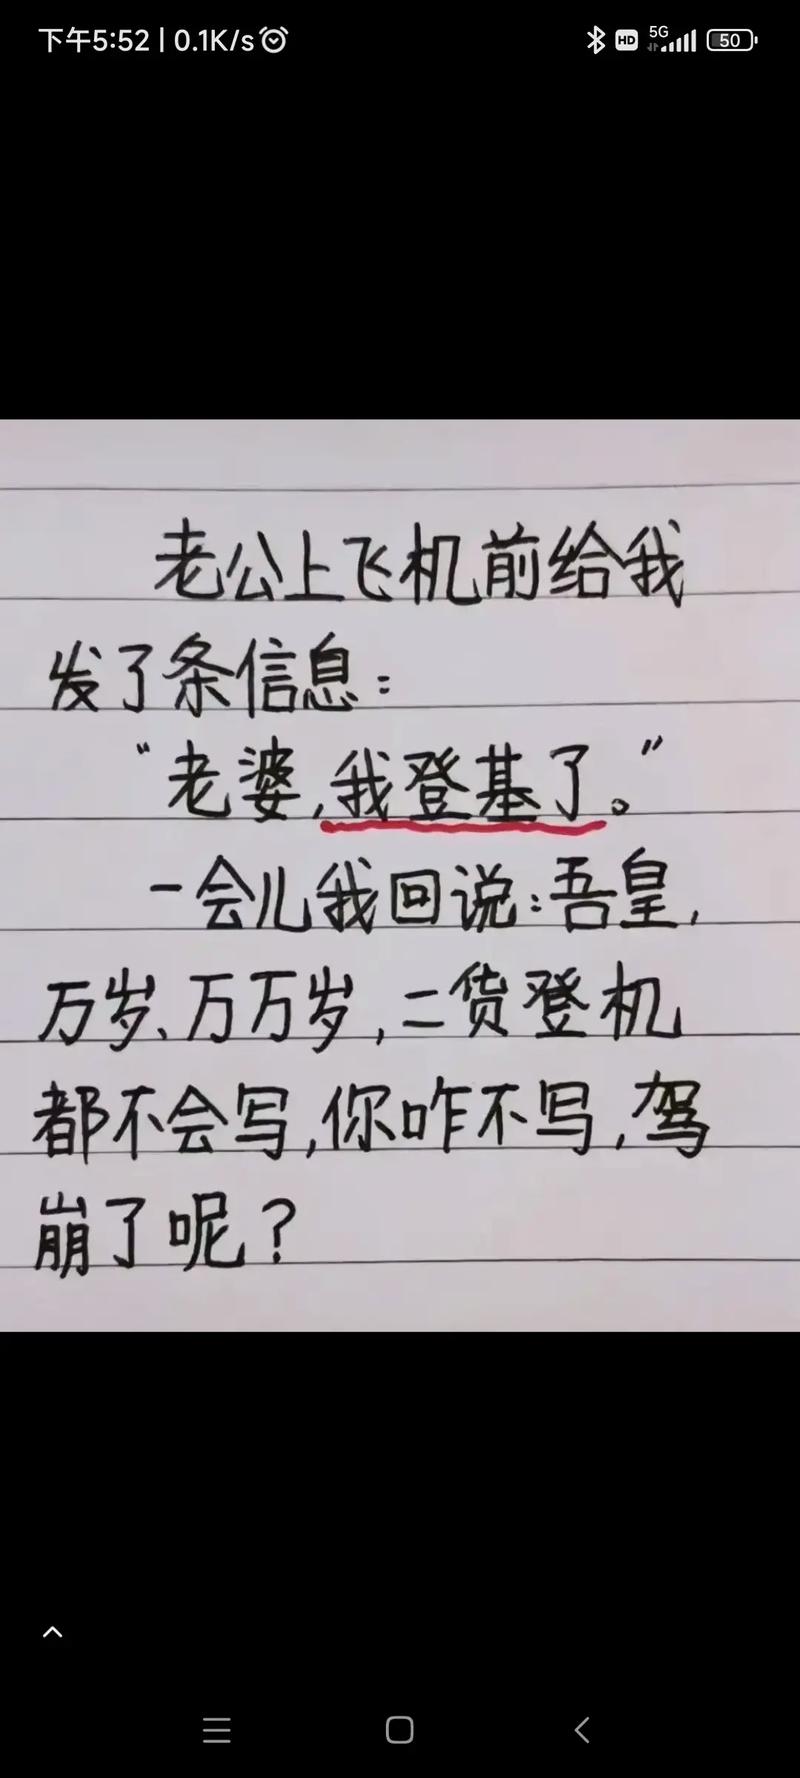 下午5:52 | 0.1K/s
HD 5G 50
老公上飞机前给我
发了条信息：
“老婆,我登基了。”
一会儿我回说:吾皇,
万岁、万万岁,二货登机
都不会写,你咋不写,驾
崩了呢?